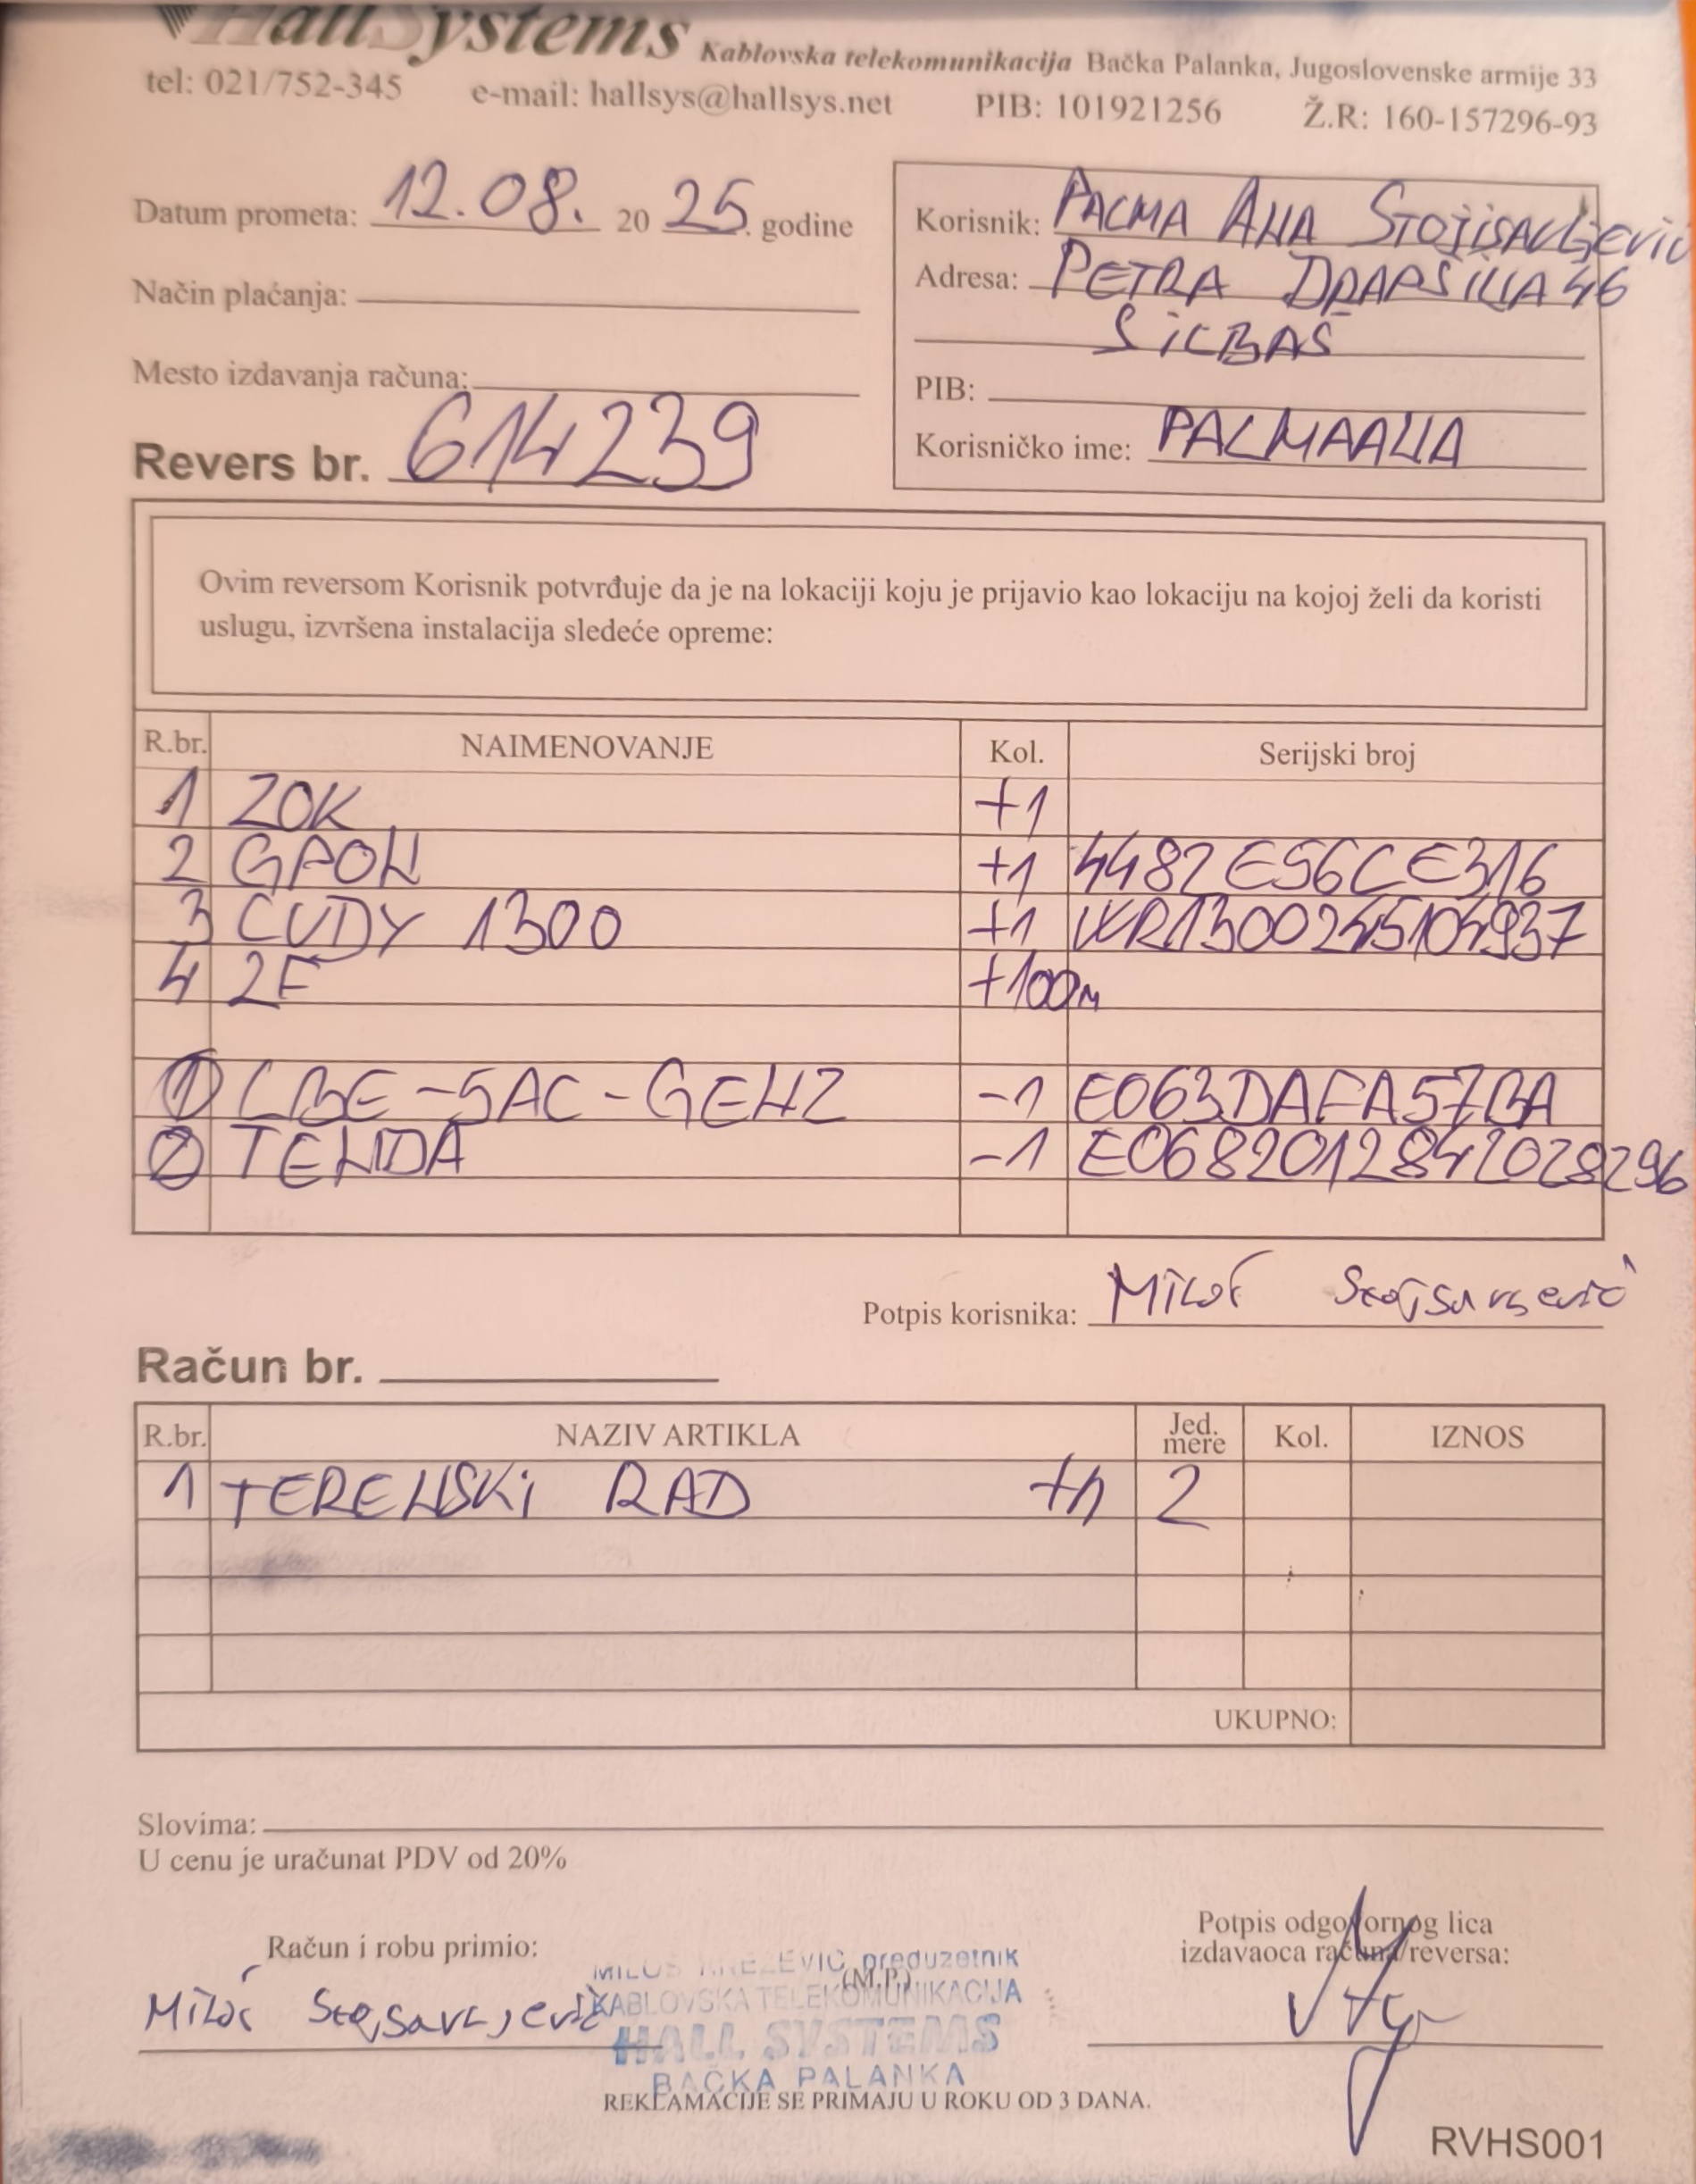 HallSystems Kablovska telekomunikacija Bačka Palanka, Jugoslovenske armije 33
tel: 021/752-345 e-mail: hallsys@hallsys.net PIB: 101921256 Ž.R: 160-157296-93
Datum prometa: 12.08. 2025. godine
Način plaćanja:
Mesto izdavanja računa:
Revers br. 614239
Korisnik: PALMA ANA STOJISAVLJEVIĆ
Adresa: PETRA DRAPŠINA 46
SILBAŠ
PIB:
Korisničko ime: PALMAANA
Ovim reversom Korisnik potvrđuje da je na lokaciji koju je prijavio kao lokaciju na kojoj želi da koristi
uslugu, izvršena instalacija sledeće opreme:
R.br. NAIMENOVANJE Kol. Serijski broj
1 ZOK +1
2 GPON +1 4482E56CE316
3 CUDY 1300 +1 WR1300245104937
4 2F +100m
1 LBE-5AC-GEN2 -1 E063DAFA57BA
2 TENDA -1 E0682012842028296
Potpis korisnika: Miloš Stojisavljević
Račun br.
R.br. NAZIV ARTIKLA Jed. mere Kol. IZNOS
1 TERENSKI RAD +1 2
UKUPNO:
Slovima:
U cenu je uračunat PDV od 20%
Račun i robu primio:
Miloš Stojisavljević
MILOŠ KNEŽEVIĆ preduzetnik
(M.P.)
KABLOVSKA TELEKOMUNIKACIJA
HALL SYSTEMS
BAČKA PALANKA
Potpis odgovornog lica
izdavaoca računa/reversa:
REKLAMACIJE SE PRIMAJU U ROKU OD 3 DANA.
RVHS001